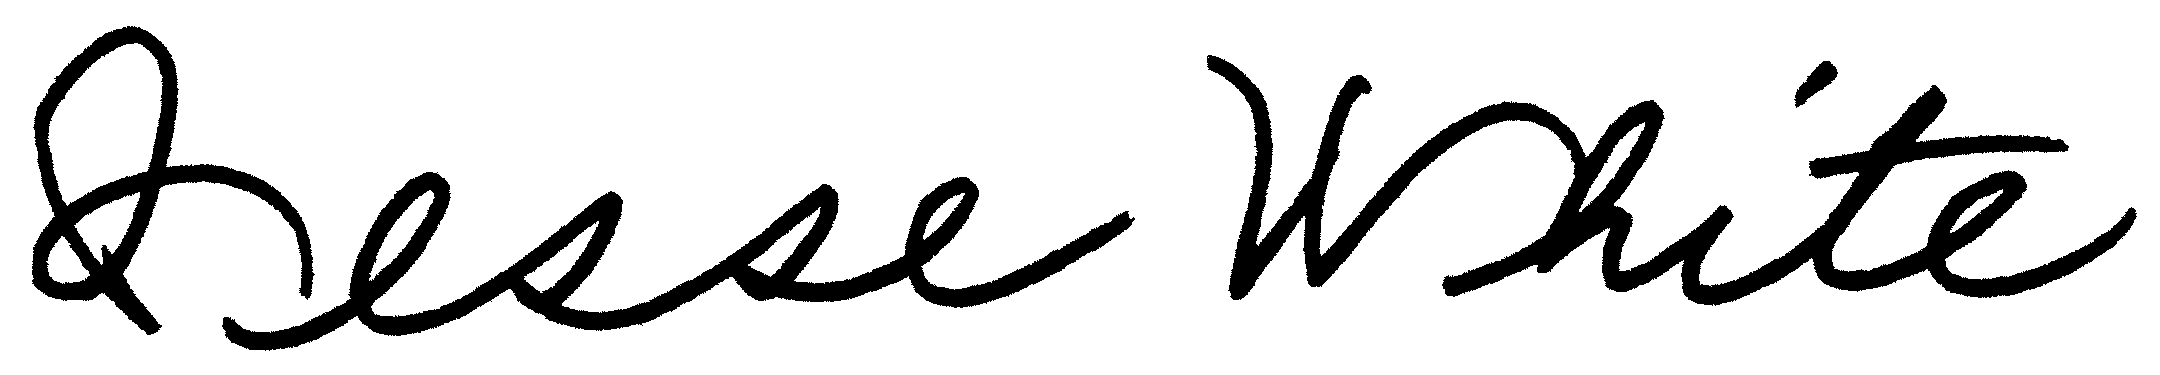 Jesse White